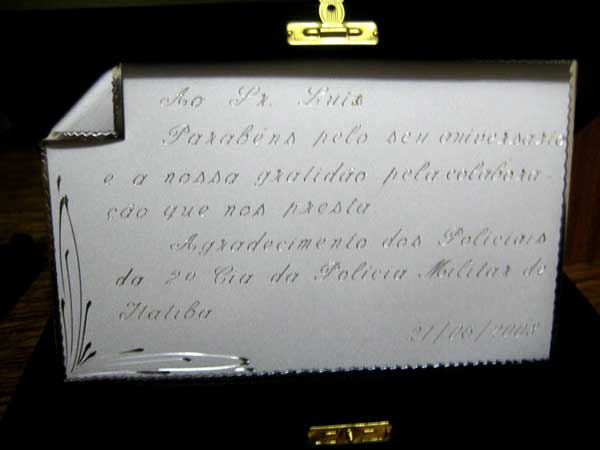 Ao Sr. Luis
Parabéns pelo seu aniversario
e a nossa gratidão pela colabora-
ção que nos presta
Agradecimento dos Policiais
da 2º Cia da Polícia Militar de
Itatiba
21/06/2008